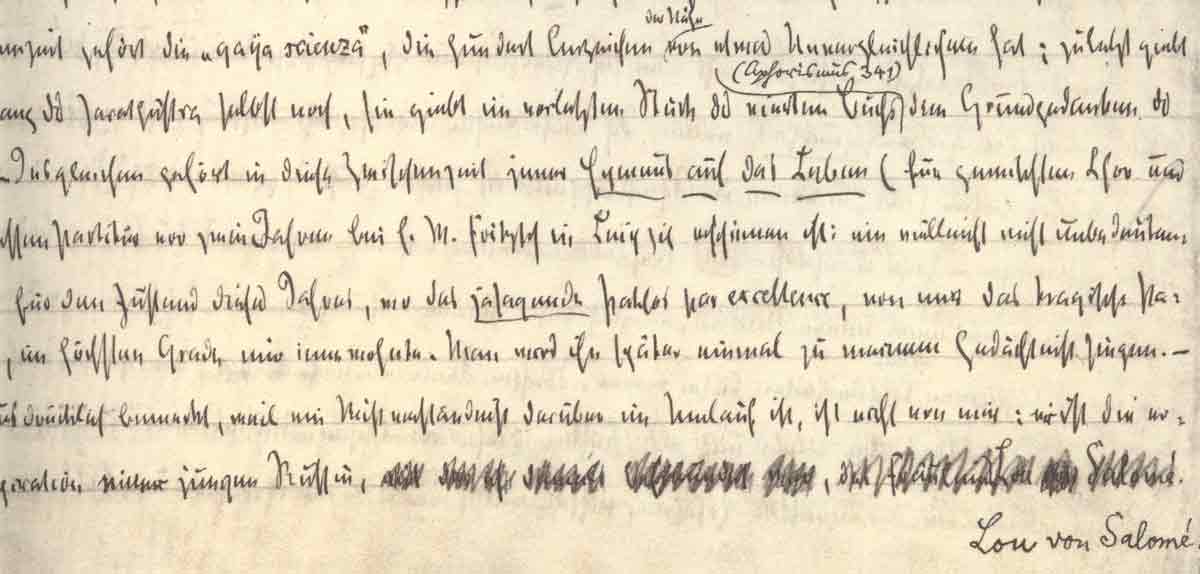 der Nähe
enzeit gehört die „gaya scienza“, die hundert Anzeichen von etwas Unvergleichlichem hat; zuletzt giebt
(Aphorismus 341)
ang des Zarathustra selbst noch, sie giebt im vorletzten Stück des vierten Buchs den Grundgedanken des
– Insgleichen gehört in diese Zwischenzeit jener Hymnus auf das Leben (für gemischten Chor und
ssen Partitur vor zwei Jahren bei E. W. Fritzsch in Leipzig erschienen ist: ein vielleicht nicht unbedeuten-
für den Zustand dieses Jahres, wo das jasagende Pathos par excellence, von mir das tragische Pa-
, im höchsten Grade mir innewohnte. Man wird ihn später einmal zu meinem Gedächtniß singen. –
usdrücklich bemerkt, weil ein Mißverständniß darüber im Umlauf ist, ist nicht von mir: er ist die er-
piration einer jungen Russin, Salomé.
Lou von Salomé.